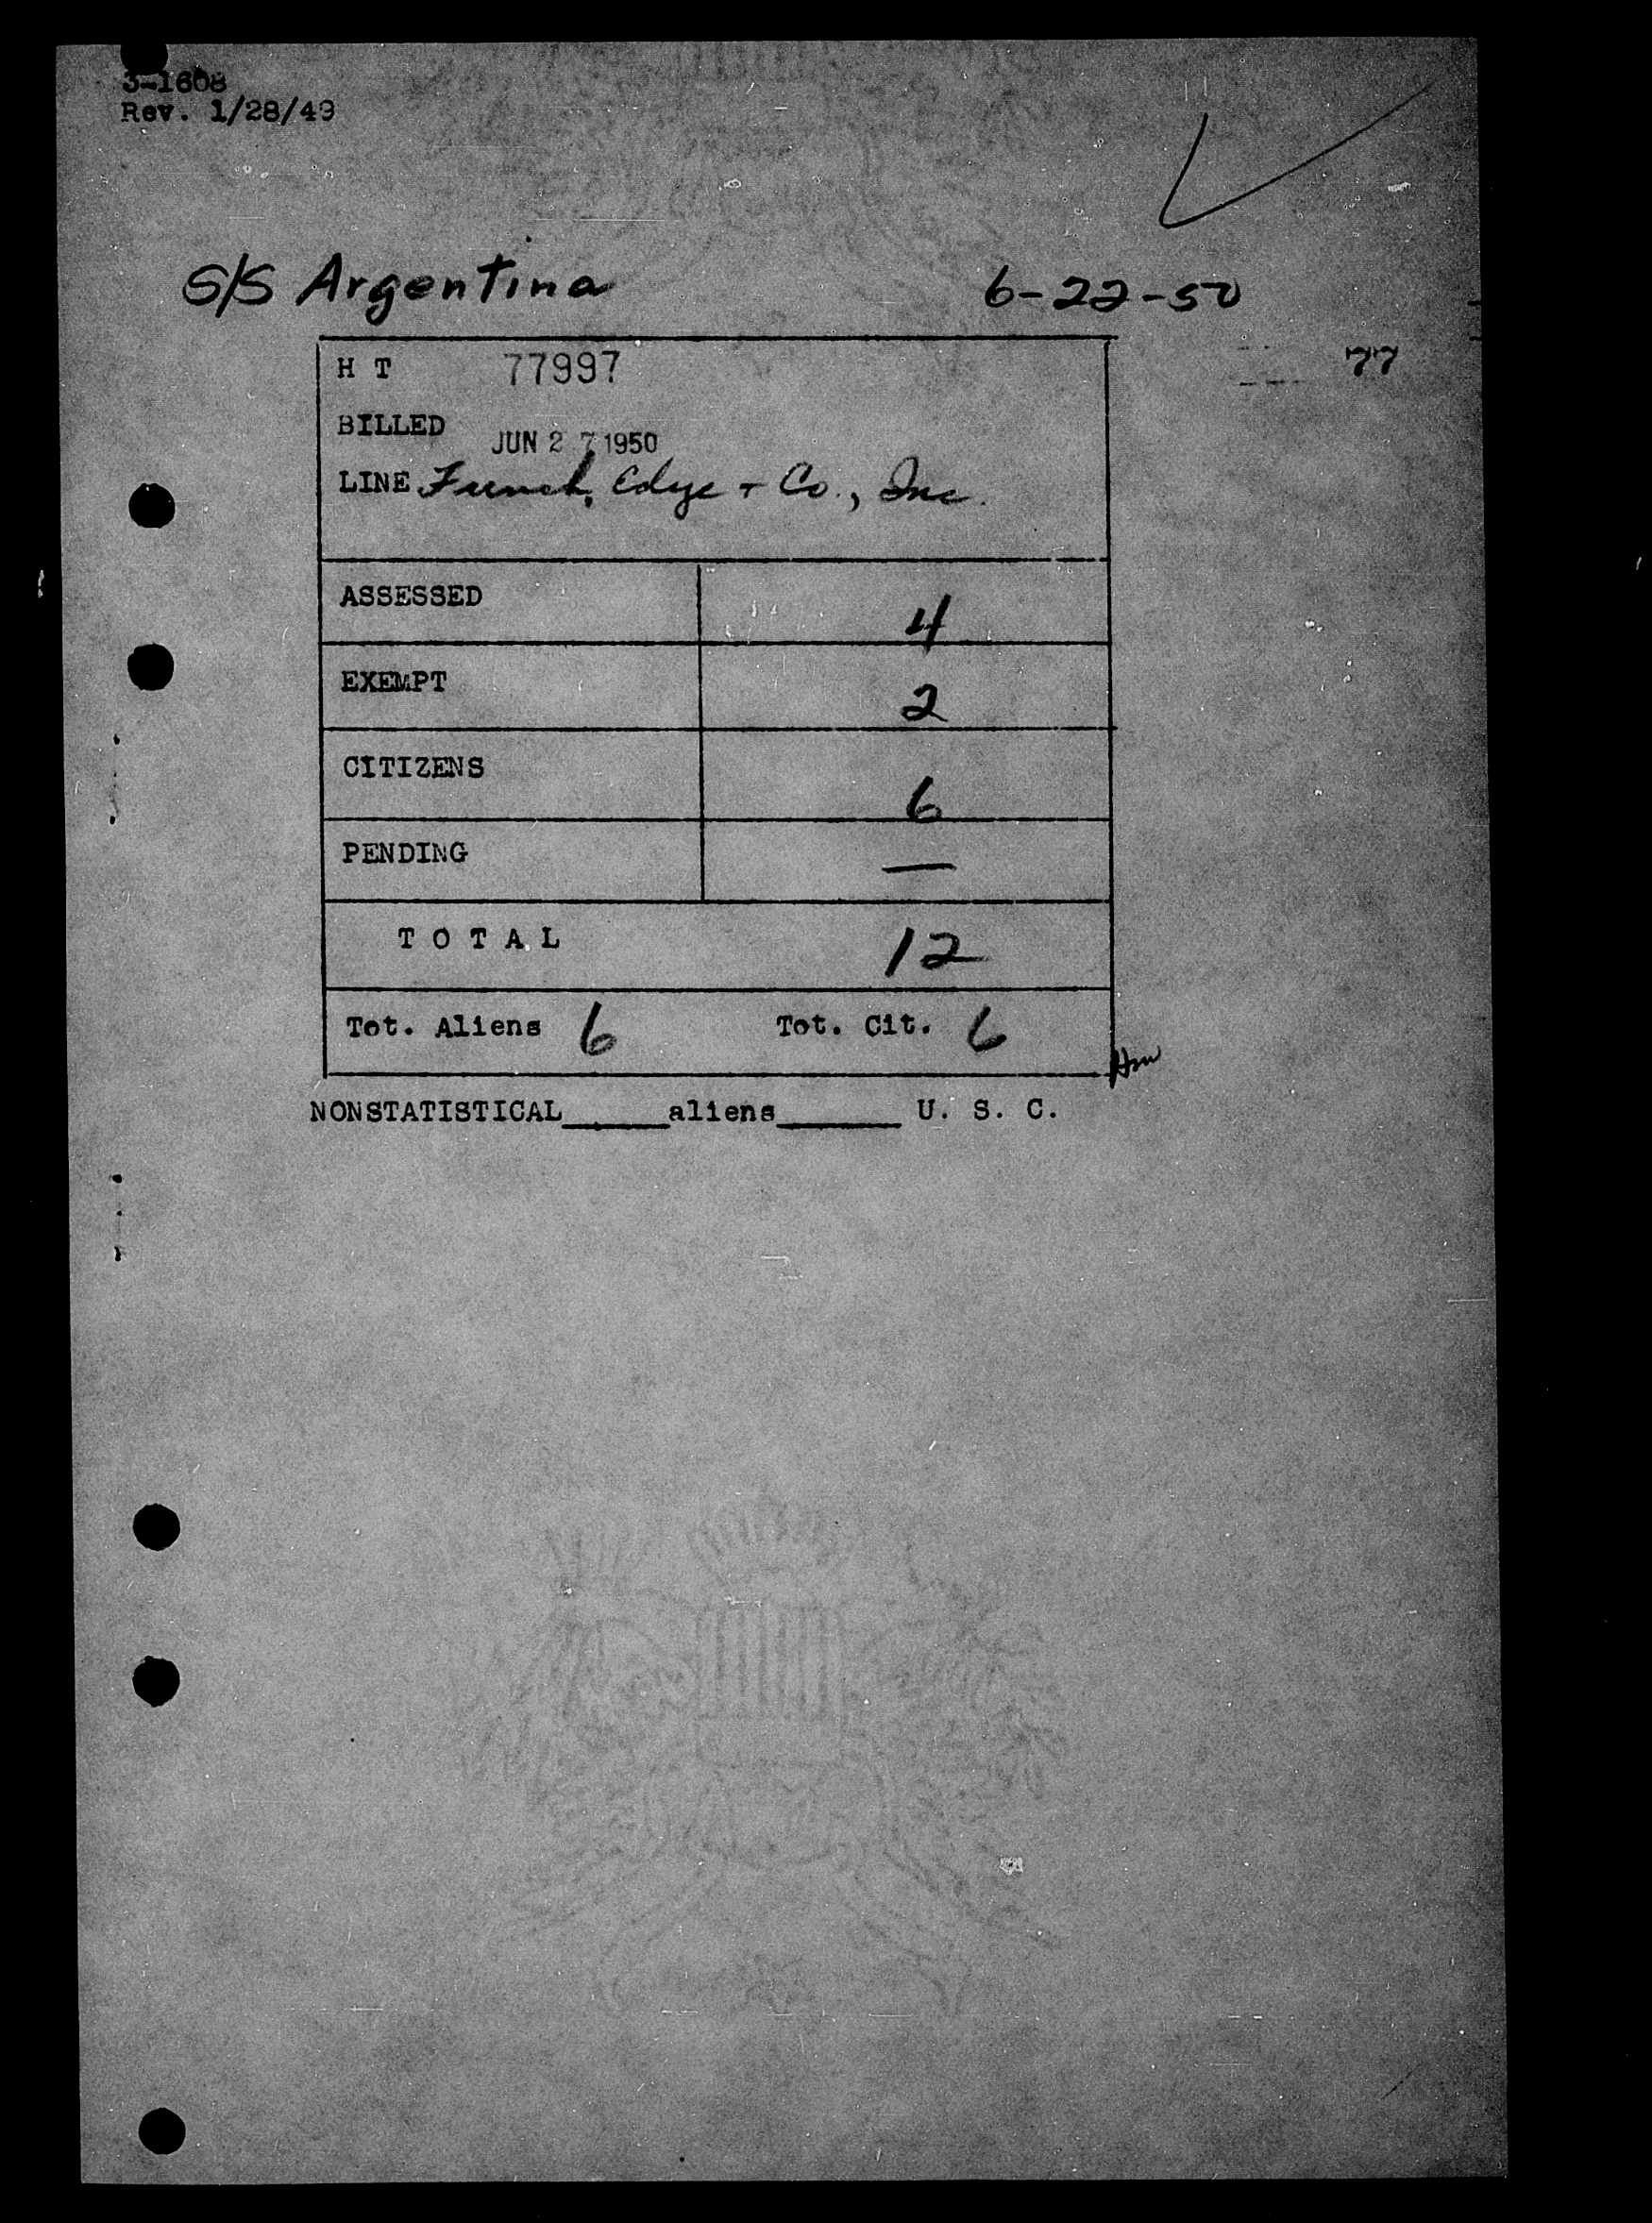 3-1608
Rev. 1/28/49
S/S Argentina 6-22-50
77
H T 77997
BILLED JUN 27 1950
LINE Funch, Edye + Co., Inc.
ASSESSED 4
EXEMPT 2
CITIZENS 6
PENDING —
TOTAL 12
Tot. Aliens 6 Tot. Cit. 6
NONSTATISTICAL______aliens_______ U. S. C.